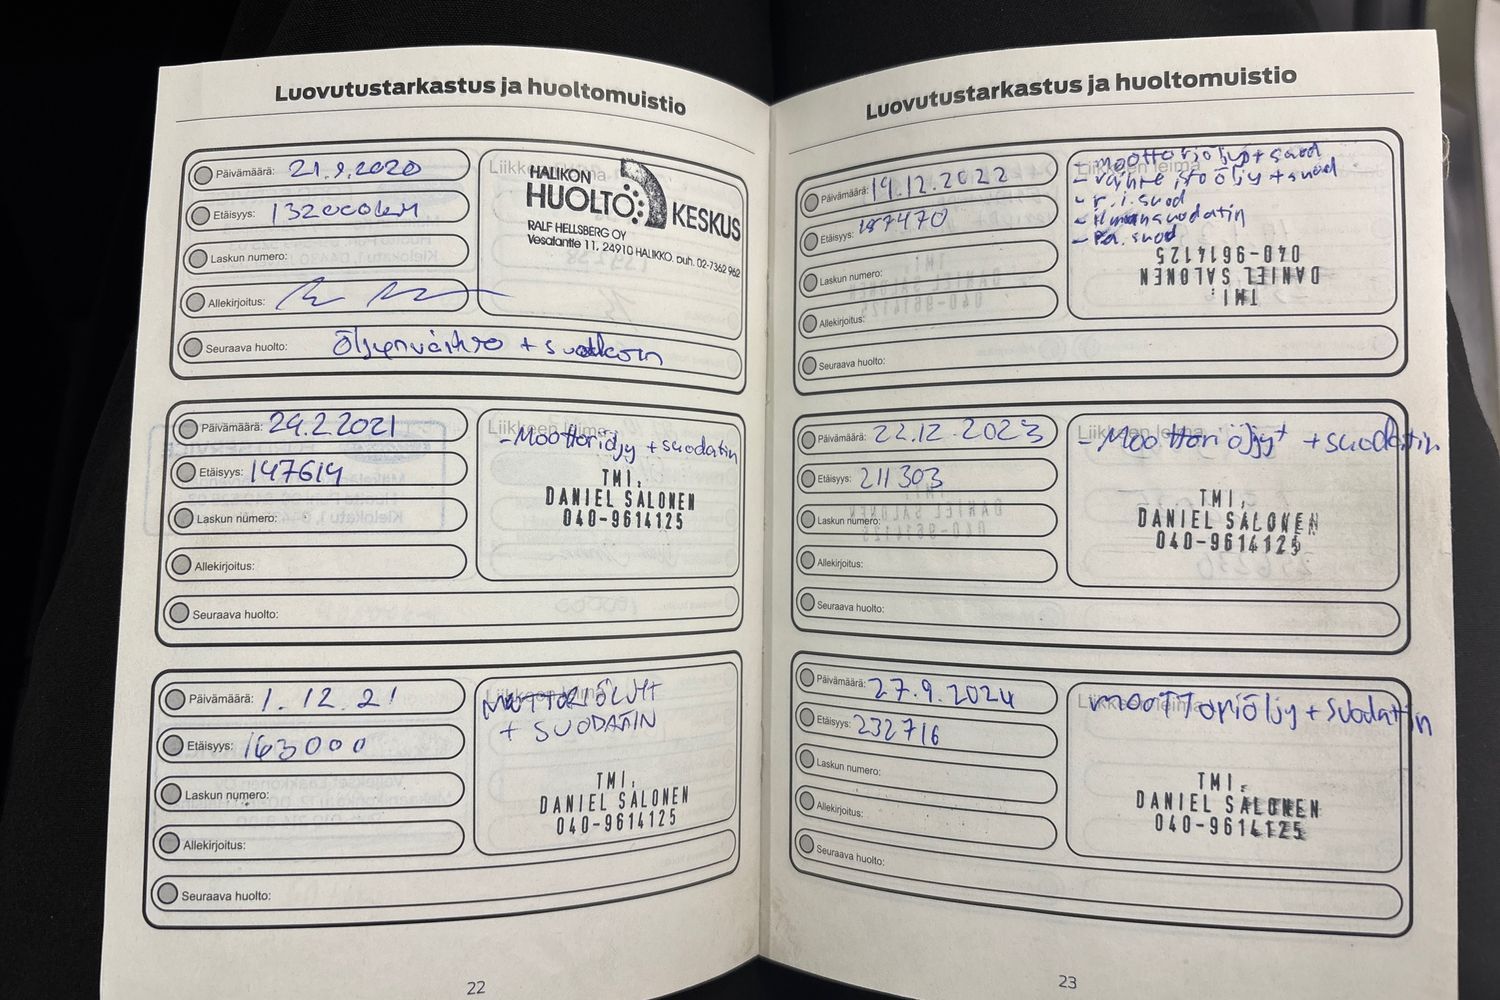 Luovutustarkastus ja huoltomuistio
Päivämäärä: 21.9.2020
Etäisyys: 132000km
Laskun numero:
Allekirjoitus:
Seuraava huolto: Öljynvaihto + suodatin
HALIKON
HUOLTO KESKUS
RALF HELLSBERG OY
Vesalantie 11, 24910 HALIKKO. Puh. 02-7362 962
Päivämäärä: 24.2.2021
Etäisyys: 147614
Laskun numero:
Allekirjoitus:
Seuraava huolto:
Liikkeen leima
-Moottoriöljy + suodatin
TMI,
DANIEL SALONEN
040-9614125
Päivämäärä: 1.12.21
Etäisyys: 163000
Laskun numero:
Allekirjoitus:
Seuraava huolto:
Liikkeen leima
MOTTORIÖLJYT
+ SUODATIN
TMI,
DANIEL SALONEN
040-9614125
22
Luovutustarkastus ja huoltomuistio
Päivämäärä: 19.12.2022
Etäisyys: 187470
Laskun numero:
Allekirjoitus:
Seuraava huolto:
Liikkeen leima
- Moottoriöljyt + suod
- vaihteistoöljy + suod
- r.i.suod
- ilmansuodatin
- Pa. suod
TMI,
DANIEL SALONEN
040-9614125
Päivämäärä: 22.12.2023
Etäisyys: 211303
Laskun numero:
Allekirjoitus:
Seuraava huolto:
Liikkeen leima
- Moottoriöljyt + suodatin
TMI,
DANIEL SALONEN
040-9614125
Päivämäärä: 27.9.2024
Etäisyys: 232716
Laskun numero:
Allekirjoitus:
Seuraava huolto:
Liikkeen leima
mooTToriöljy + suodatin
TMI,
DANIEL SALONEN
040-9614125
23